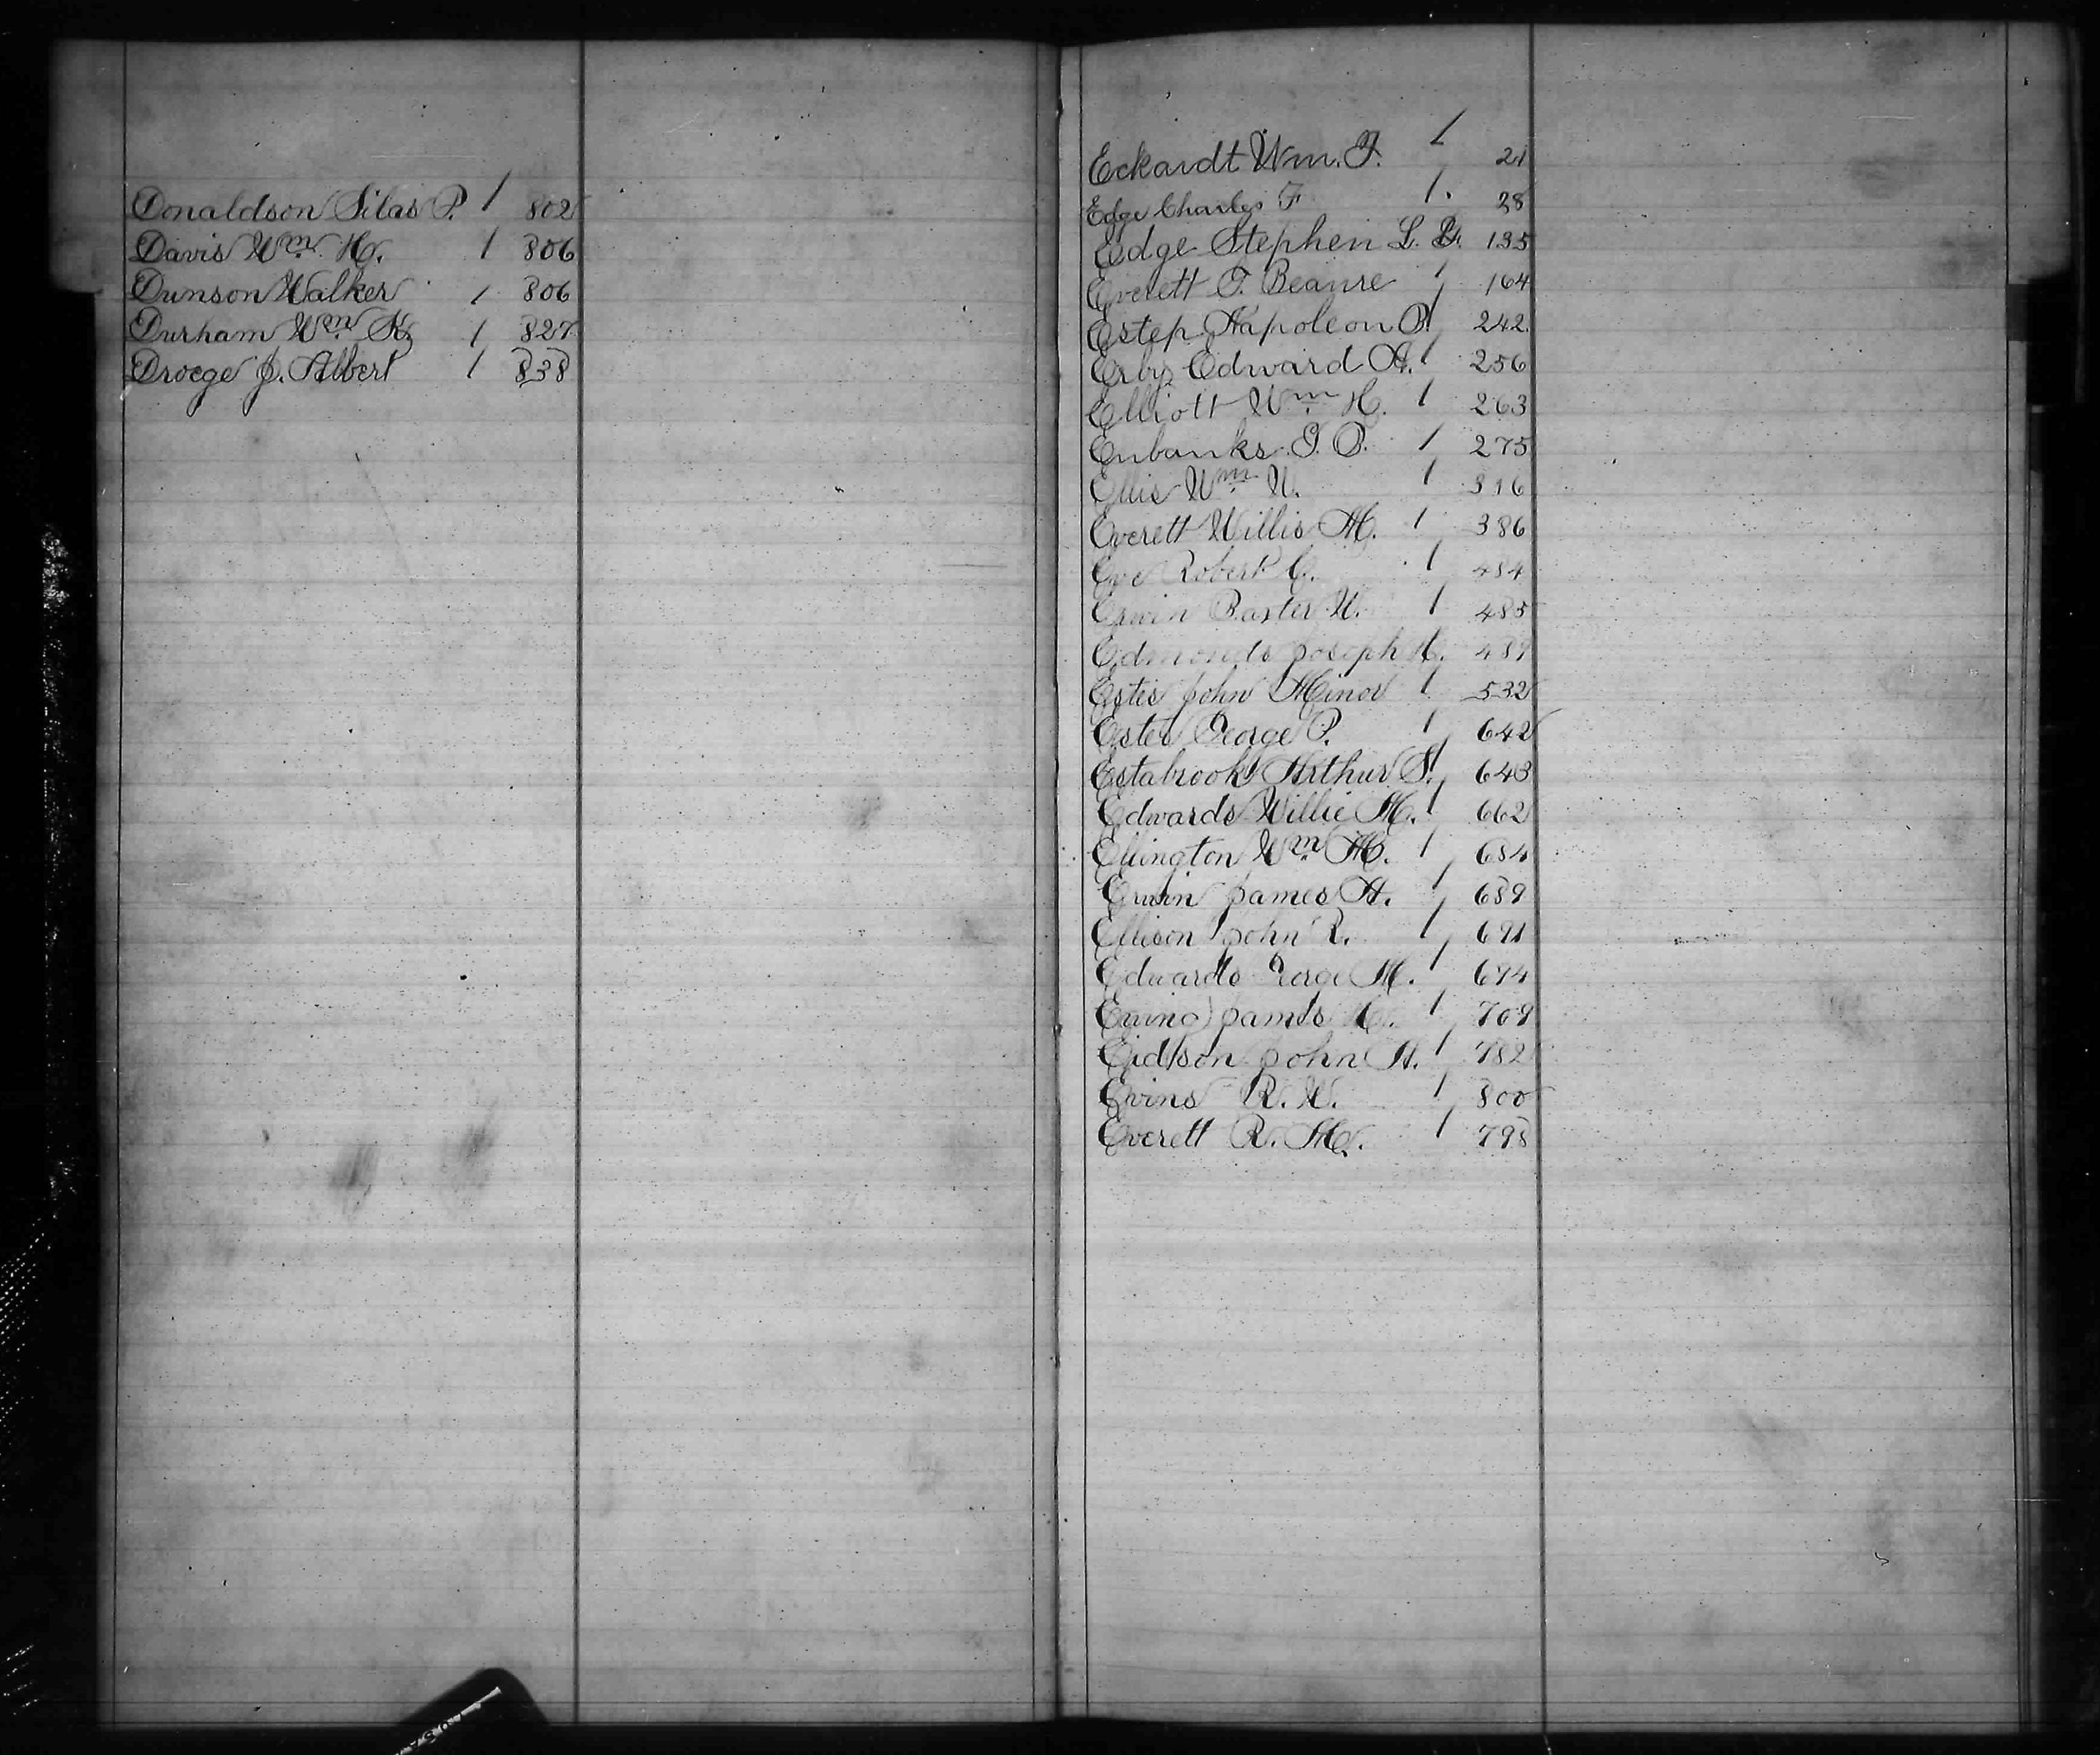 Donaldson Silas P. / 802
Davis Wm. H. / 806
Dunson Walker / 806
Durham Wm. K. / 827
Droege J. Albert / 838
Eckardt Wm. F. / 21
Edge Charles F / 28
Edge Stephen L. 135
Everett T. Beaure / 164
Estep Napoleon B. / 242
Erby Edward A. / 256
Elliott Wm. H. / 263
Eubanks / 275
Ellis Wm. W. / 316
Everett Willis M. / 386
Eve Robert C. / 484
Erwin Baxter / 485
Edmonds Joseph
Estes John Minor / 532
Ester George P. / 642
Estabrook Arthur S. / 643
Edwards Willie M. / 662
Ellington Wm. H. / 684
Erwin James A. / 689
Ellison John R. / 691
Edwards George M. / 694
Ewing James / 709
Eidson John A. / 782
Evins R. W. / 800
Everett R. M. / 798